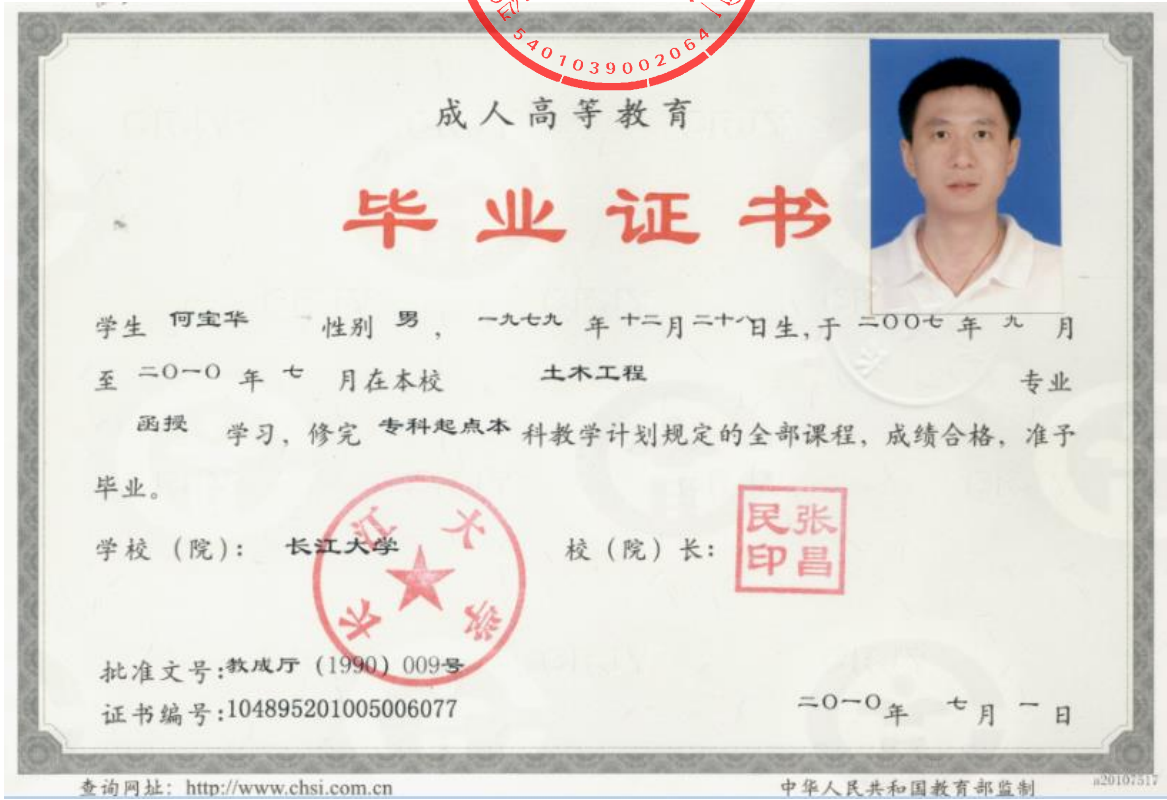 5401039002064
成人高等教育
毕业证书
学生 何宝华 性别 男 ， 一九七九 年 十二月 二十八日生，于 二〇〇七 年 九 月
至 二〇一〇 年 七 月在本校 土木工程 专业
函授 学习，修完 专科起点本 科教学计划规定的全部课程，成绩合格，准予
毕业。
学校（院）： 长江大学 校（院）长：
张昌民印
长江大学
批准文号:教成厅（1990）009号
证书编号:104895201005006077
二〇一〇年 七月 一 日
查询网址：http://www.chsi.com.cn
中华人民共和国教育部监制
n20107517